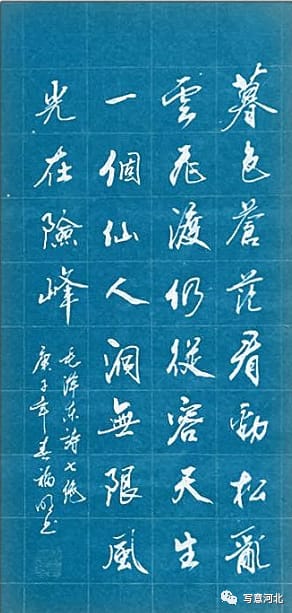 暮色蒼茫看勁松亂
雲飛渡仍從容天生
一個仙人洞無限風
光在險峰
毛澤東詩七絕
庚子年春福明书
写意河北